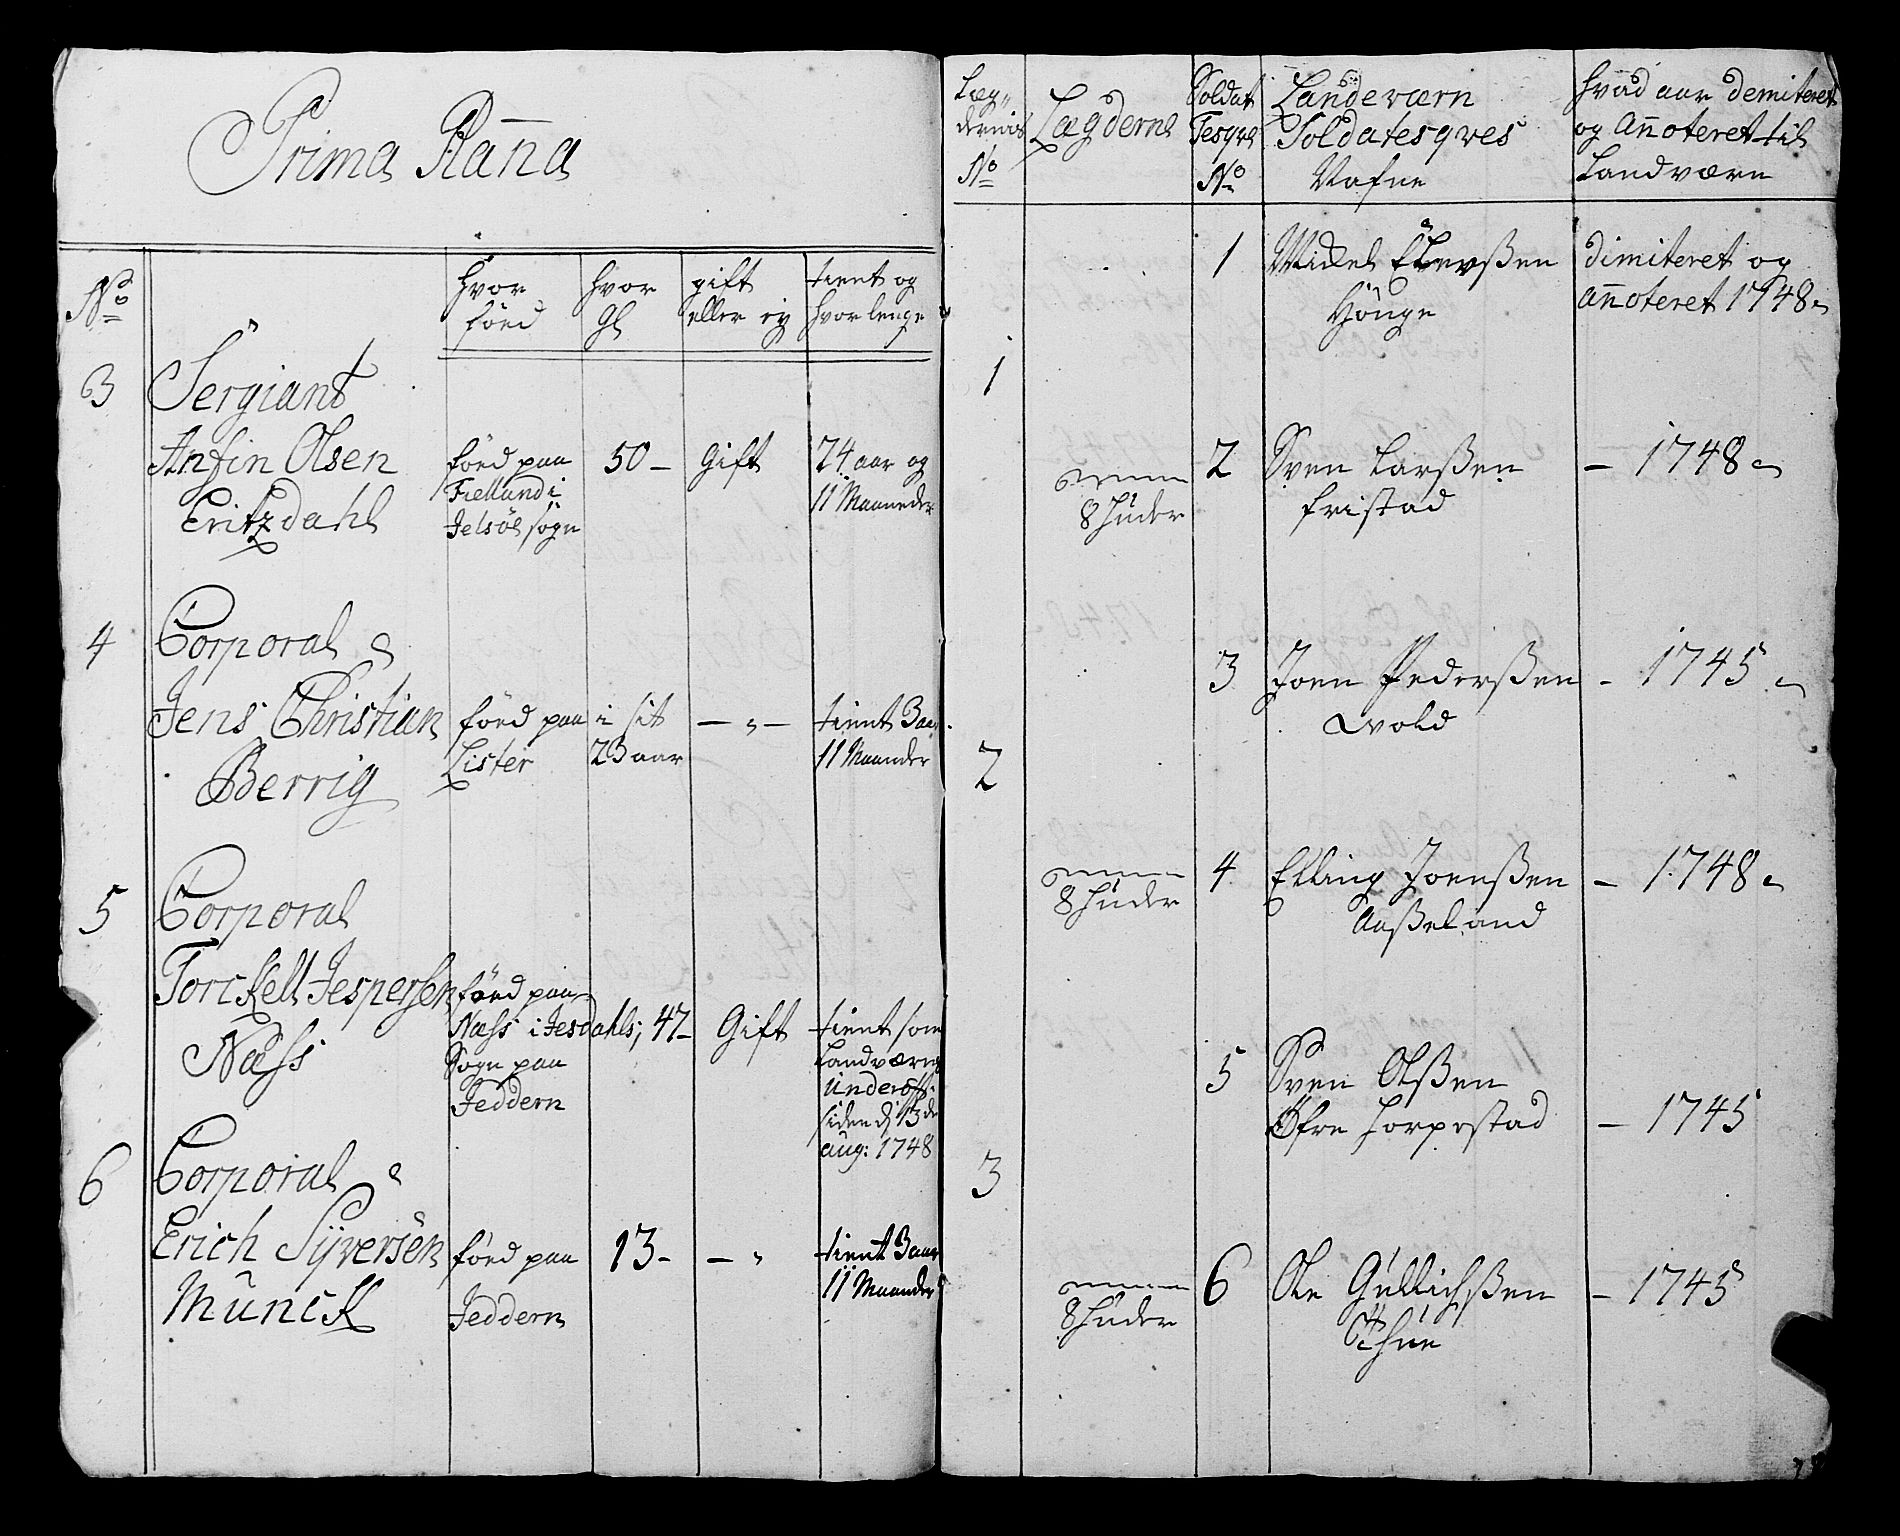 Prima Plana
No
hvor
föed
hvor
gl
gift
eller ey
tient og
hvorlenge
3 Sergiant
Anfin Olsen
Eritzdahl
föed paa
Fiellandi
Jelsöe sogn
50 –
Gift
24 aar og
11 Maaneder
4 Corporal
Jens Christian
Berrig
föed paa
Lister
i sit
23 aar
– „ –
tient 3 aar
11 Maander
5 Corporal
Torckell Jespersen
Næss
föed paa
Næss i Jesdahls;
Sogn paa
Jeddern
47 –
Gift
tient som
Landværns
Underoff:
siden d 13de
aug: 1748
6 Corporal
Erich Syversön
Munck
föed paa
Jeddern
13 –
– „
tient 3 aar
11 Maander
Læg„
dernis
No
Lægderne
Soldat
Tesqve
No
Landeværn
Soldatesqves
Nafne
hvad aar demiteret
og Annoteret til
Landværn
1
1 Mickel
Höuge
dimiteret og
annoteret 1748
8 Huder
2 Sven Larssen
fristad
– 1748
2
3 Joen Pederssen
Wold
– 1745
8 Huder
4 Elling Joenssen
Aasseland
– 1748
3
5 Sven Olssen
Øfre Horpestad
– 1745
8 Huder
6 Ole Gullichssen
Thue
– 1745